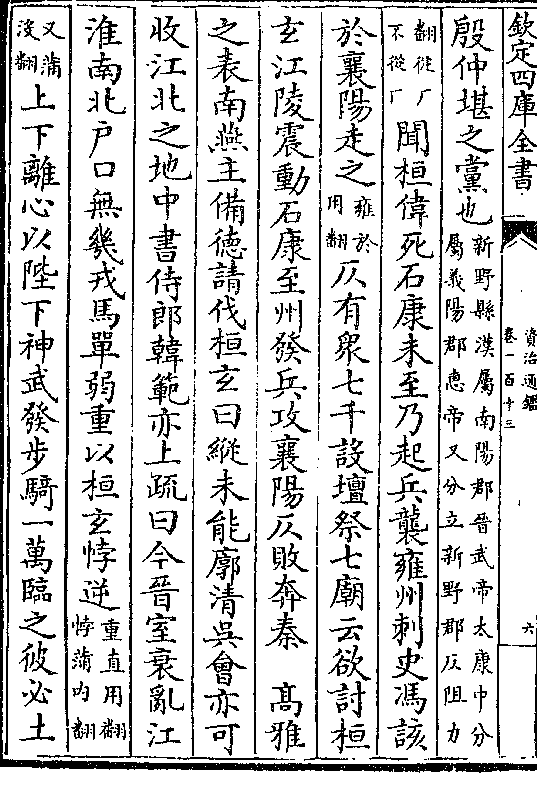 欽定四庫全書
資治通鑑
卷一百十三
六
殷仲堪之黨也新野縣漢屬南陽郡晉武帝太康中分
屬義陽郡惠帝又分立新野郡仄阻力
翻從厂
不從广聞桓偉死石康未至乃起兵襲雍州刺史馮該
於襄陽走之雍於
用翻仄有衆七千設壇祭七廟云欲討桓
玄江陵震動石康至州發兵攻襄陽仄敗奔秦　高雅
之表南燕主備徳請伐桓玄曰縱未能廓清吳會亦可
收江北之地中書侍郎韓範亦上疏曰今晉室衰亂江
淮南北户口無幾戎馬單弱重以桓玄悖逆重直用翻
悖蒲内翻
又蒲
没翻上下離心以陛下神武發步騎一萬臨之彼必土